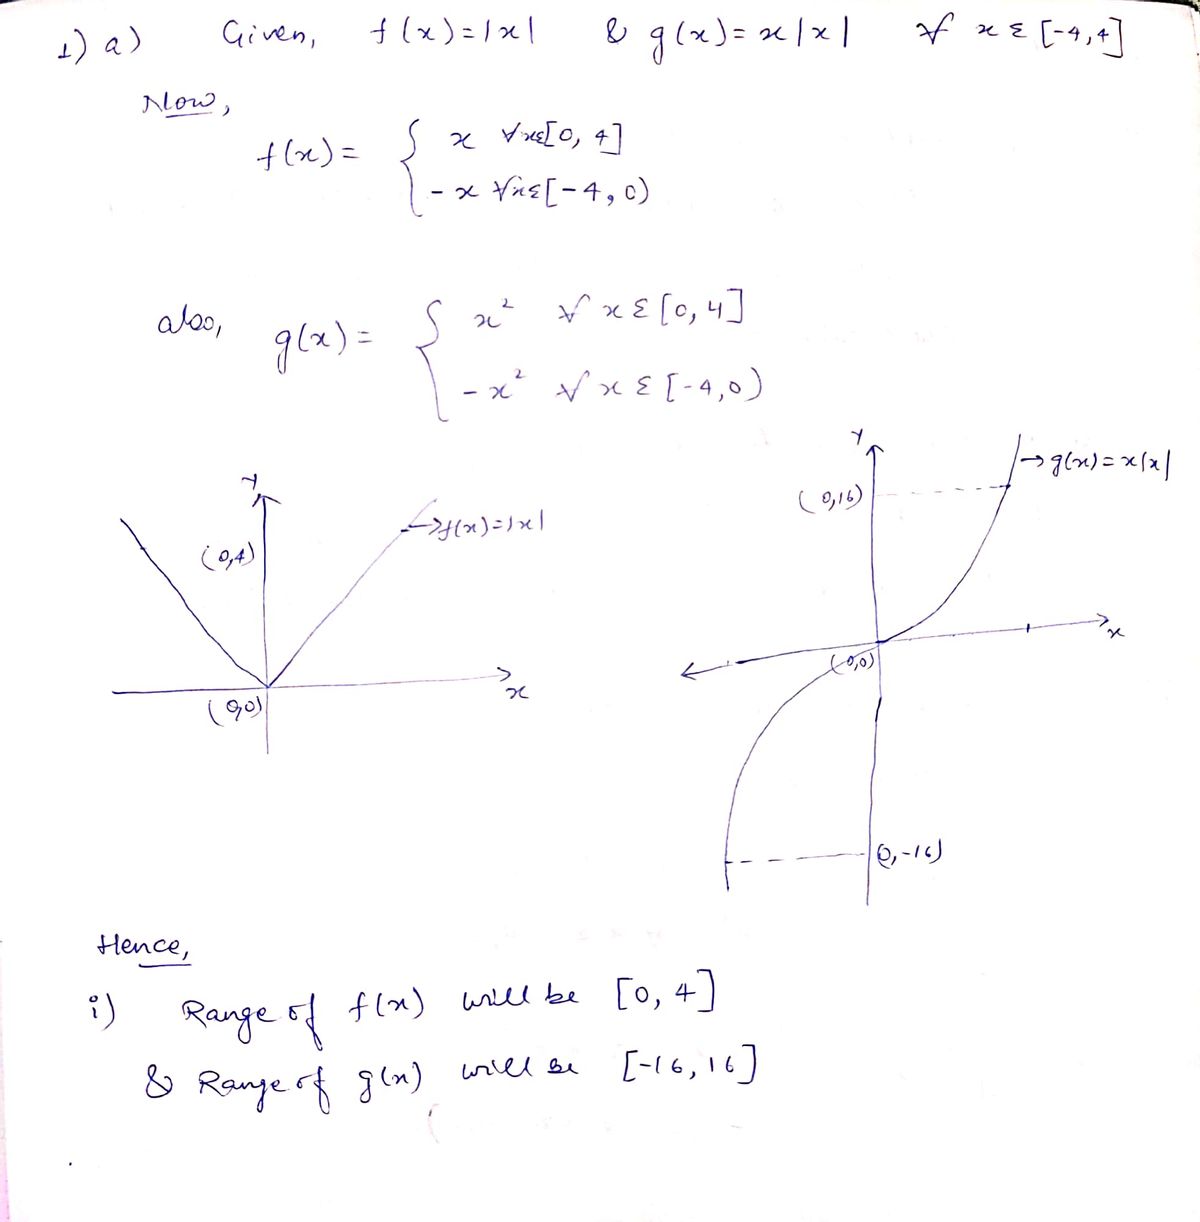 1) a) Given, f(x)=|x| & g(x)= x|x| ∀ x ε [-4,4]
Now,
f(x)= { x ∀xε[0, 4]
-x ∀xε[-4, 0)
also, g(x)= { x² ∀ x ε [0, 4]
-x² ∀ x ε [-4,0)
Y
→ g(x)=x|x|
(0,16)
Y
→f(x)=|x|
(0,4)
x
(0,0)
x
(0,0)
(0,-16)
Hence,
i) Range of f(x) will be [0, 4]
& Range of g(x) will be [-16, 16]